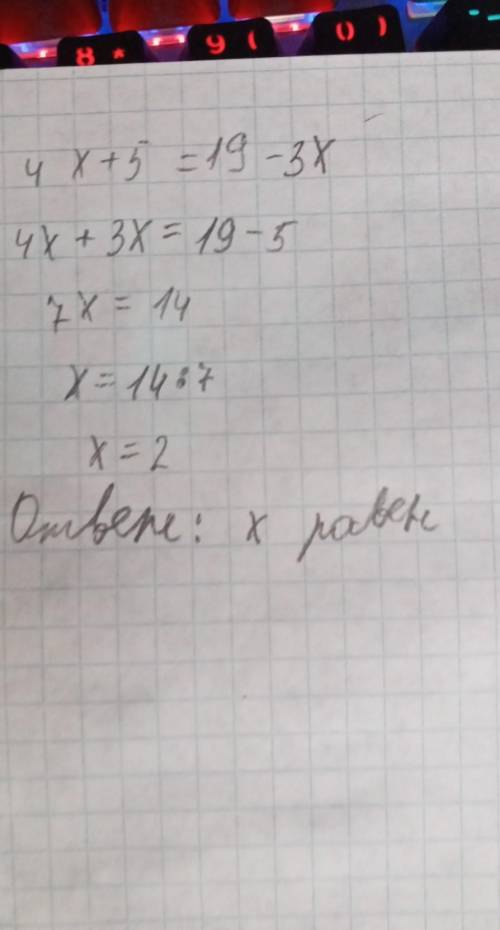 8 *
9 (
0 )
4 x + 5 = 19 - 3x
4x + 3x = 19 - 5
7x = 14
x = 14 : 7
x = 2
Ответ: x равен